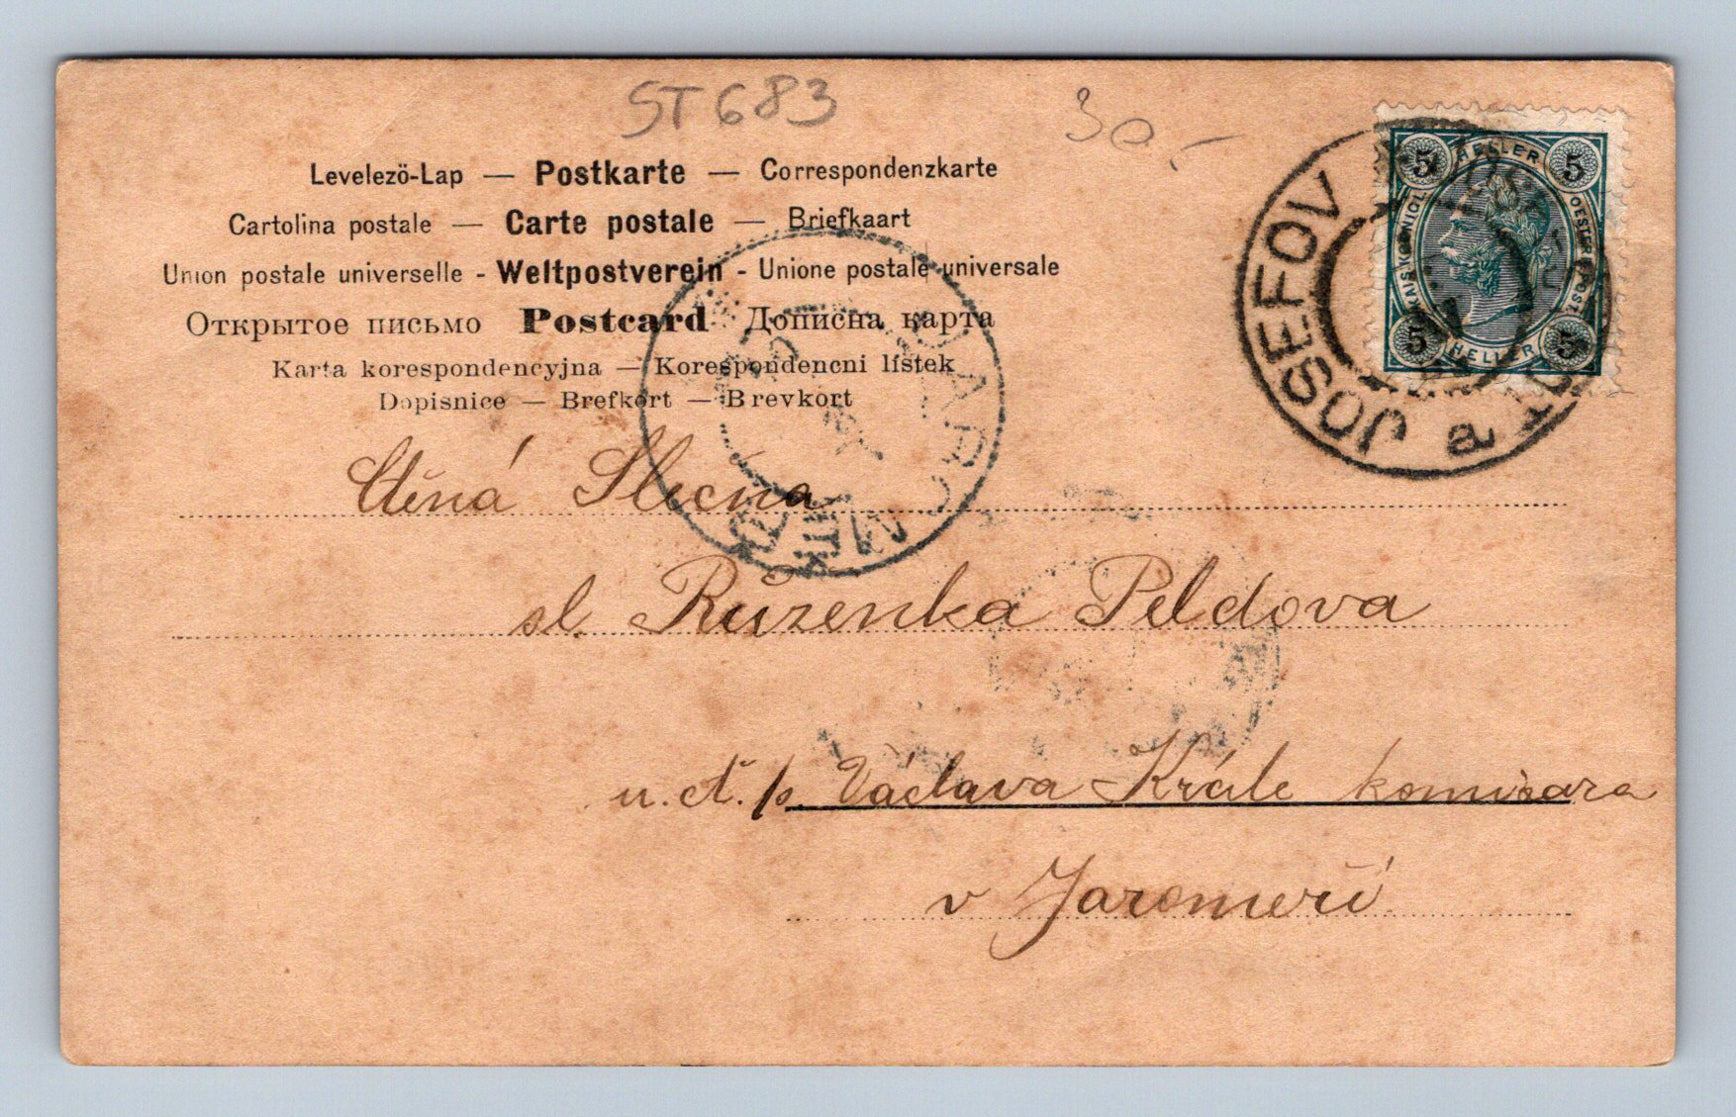 ST 683
30,-
Levelezö-Lap — Postkarte — Correspondenzkarte
Cartolina postale — Carte postale — Briefkaart
Union postale universelle - Weltpostverein - Unione postale universale
Открытое письмо Postcard Дописна карта
Karta korespondencyjna — Korespondencni lístek
Dopisnice — Brefkort — Brevkort
5 HELLER 5
KAIS. KOENIGL. OESTERR. POST
5 HELLER 5
JOSEFOV
a
JAROMĚŘ
Ctěná Slečna
sl. Růzenka Peldova
u. ct. p. Václava Krále komisara
v Jaroměři